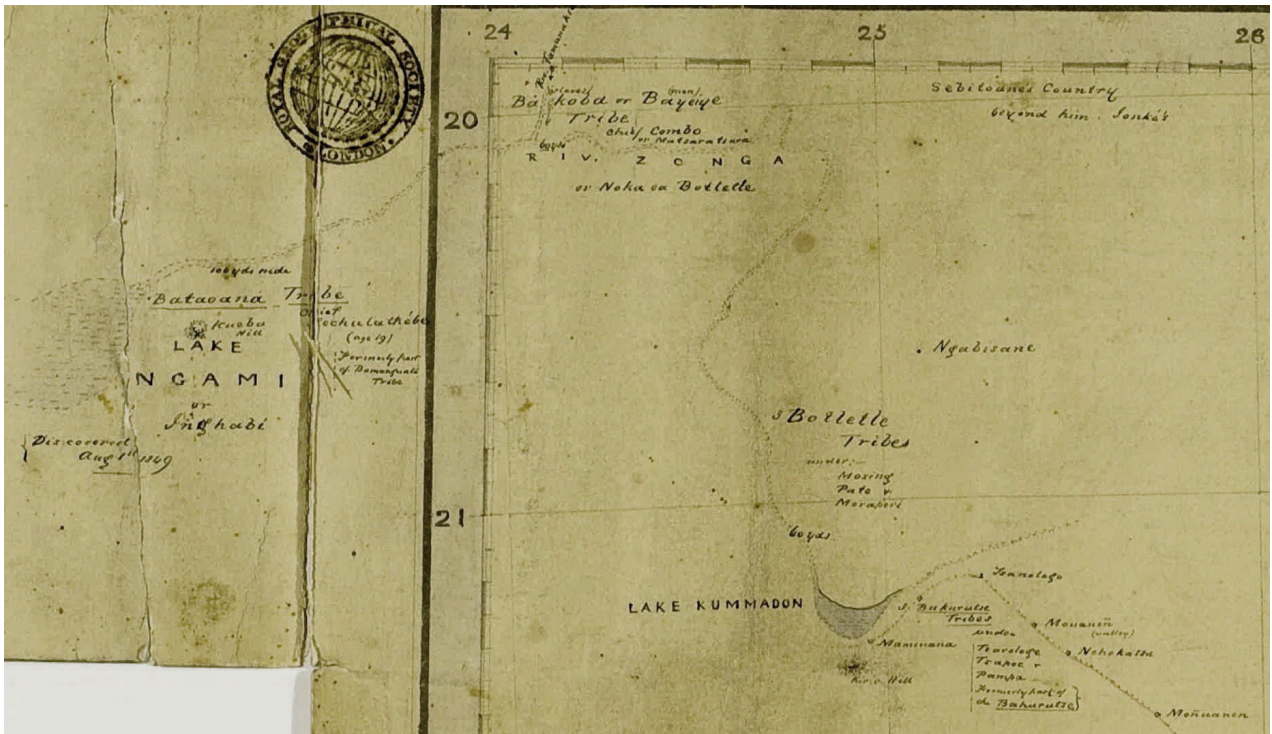 ROYAL GEOGRAPHICAL SOCIETY
LONDON
24
25
26
20
21
Riv. Tamunakle
(slaves) (men)
Bakoba or Bayeiye
Tribe
chief Combo
or Matsaratsara
60 yds
RIV. ZONGA
or Noka oa Botletle
Sebitoane's Country
beyond him
100 yds wide
Bataoana Tribe
Chief
(age 19)
Formerly part
of Bamanguato
Tribe
Kueba
Hill
LAKE
NGAMI
or
Inghabi
Discovered
Aug 1st 1849
Ngabisane
3 Botletle
Tribes
under:-
Mosing
Pato &
60 yds
LAKE KUMMADON
3 Bakurutse
Tribes
under
Tsapoe &
Pampa
Formerly part of
de Bahurutse
Mamunana
Hill
Mouanen
(valley)
Nchokatsa
Moñuanen